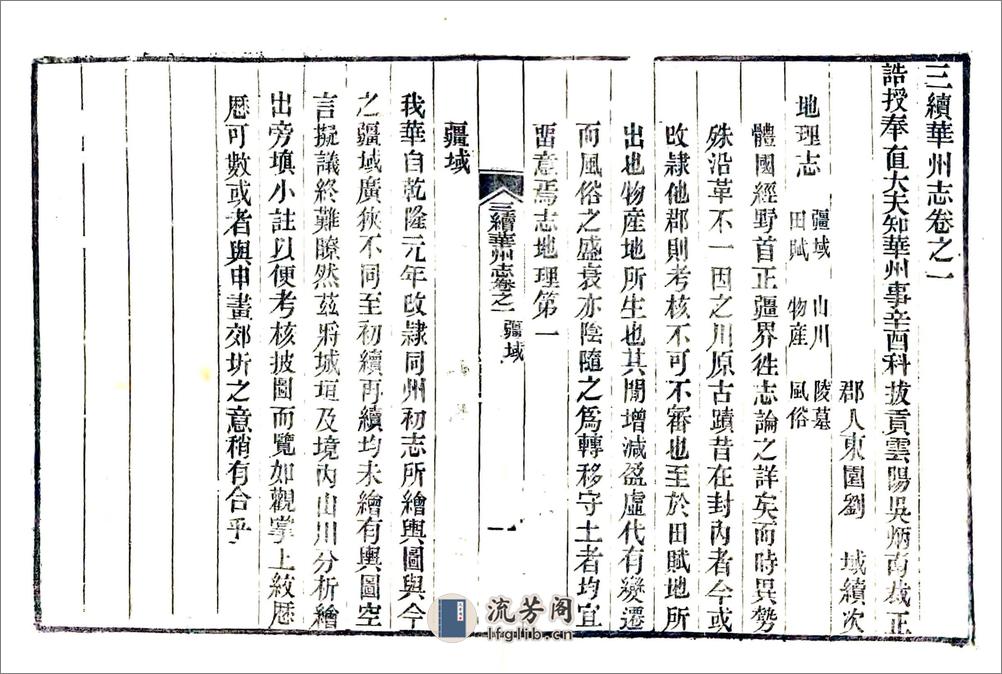 三續華州志卷之一
誥授奉直大夫知華州事辛酉科拔貢雲陽吳炳南裁正
郡人東園劉 域續次
地理志 疆域 山川 陵墓
田賦 物產 風俗
體國經野首正疆界徃志論之詳矣而時異勢
殊沿革不一因之川原古蹟昔在封內者今或
改隷他郡則考核不可不審也至於田賦地所
出也物產地所生也其閒增減盈虛代有變遷
而風俗之盛衰亦陰隨之爲轉移守土者均宜
畱意焉志地理第一
三續華州志卷之一 疆域 一
疆域
我華自乾隆元年改隷同州初志所繪輿圖與今
之疆域廣狹不同至初續再續均未繪有輿圖空
言擬議終難瞭然茲將城垣及境內山川分析繪
出旁塡小註以便考核披圖而覽如觀掌上紋歷
歷可數或者與申畫郊圻之意稍有合乎
流芳阁
lfglib.cn